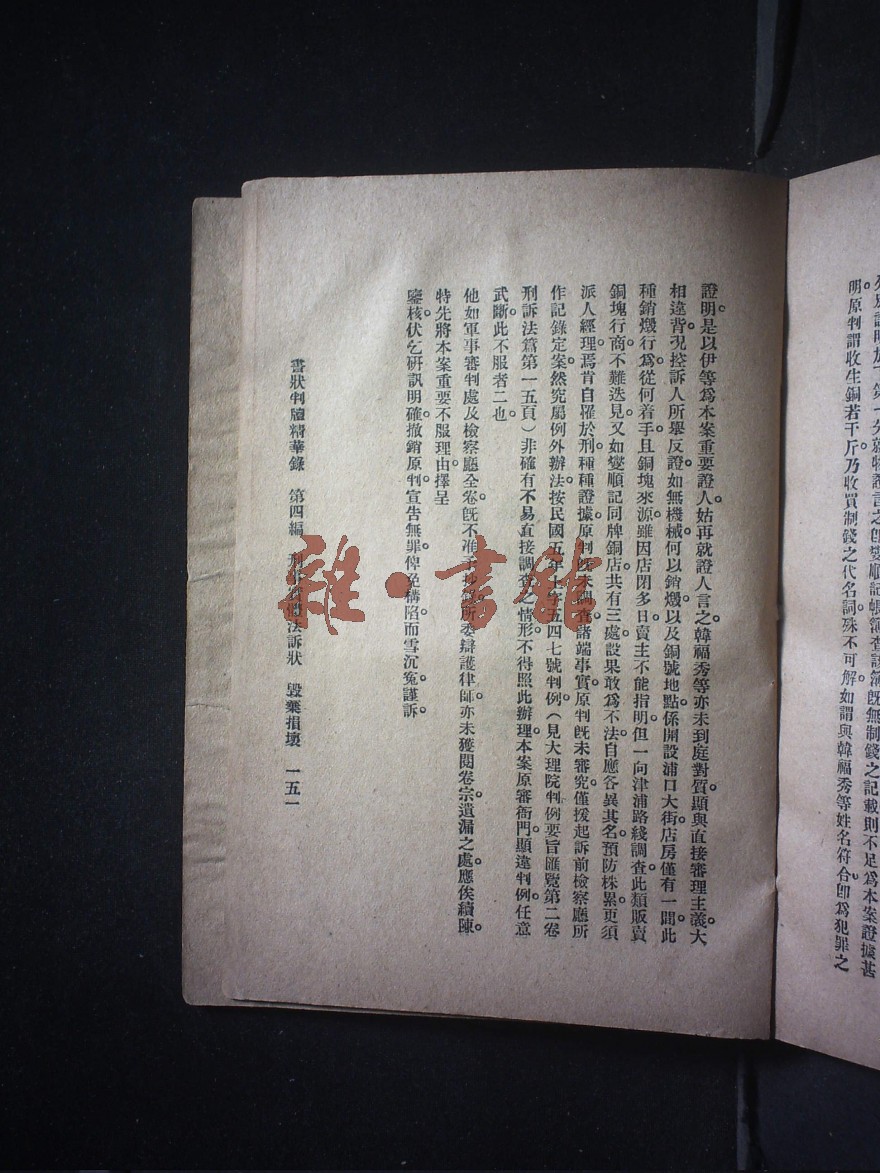 明。原判謂收生銅若干斤乃收買制錢之代名詞殊不可解如謂與韓福秀等姓名符合卽爲犯罪之
證明。是以伊等爲本案重要證人姑再就證人言之韓福秀等亦未到庭對質顯與直接審理主義大
相違背。況控訴人所舉反證如無機械何以銷燬以及銅號地點係開設浦口大街店房僅有一間此
種銷燬行爲從何着手且銅塊來源雖因店閉多日賣主不能指明但一向津浦路綫調查此類販賣
銅塊行商不難迭見又如變順記同牌銅店共有三處設果敢爲不法自應各異其名預防株累更須
派人經理焉肯自罹於刑種種證據。原判旣未調查諸端事實原判旣未審究僅援起訴前檢察廳所
作記錄定案。然究屬例外辦法。按民國五年上字五四七號判例(見大理院判例要旨匯覽第二卷
刑訴法篇第一五頁)非確有不易直接調查之情形。不得照此辦理。本案原審衙門。顯違判例。任意
武斷。此不服者二也。
他如軍事審判處及檢察廳全卷旣不准予抄錄所委辯護律師。亦未獲閱卷宗。遺漏之處。應俟續陳。
特先將本案重要不服理由。擇呈
鑒核。伏乞研訊明確。撤銷原判。宣告無罪。俾免構陷。而雪沉冤。謹訴。
書狀判牘精華錄 第四編 刑事實體法訴狀 毀棄損壞 一五一
雜·書館